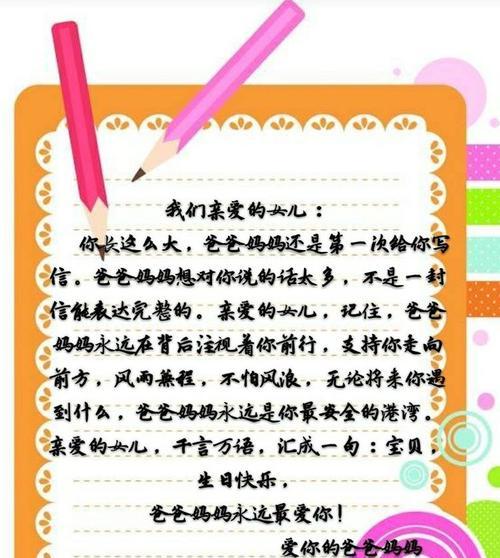 我们亲爱的女儿：
你长这么大，爸爸妈妈还是第一次给你写
信。爸爸妈妈想对你说的话太多，不是一封
信能表达完整的。亲爱的女儿，记住，爸爸
妈妈永远在背后注视着你前行，支持你走向
前方，风雨兼程，不怕风浪，无论将来你遇
到什么，爸爸妈妈永远是你最安全的港湾。
亲爱的女儿，千言万语，汇成一句：宝贝，
生日快乐，
爸爸妈妈永远最爱你！
爱你的爸爸妈妈